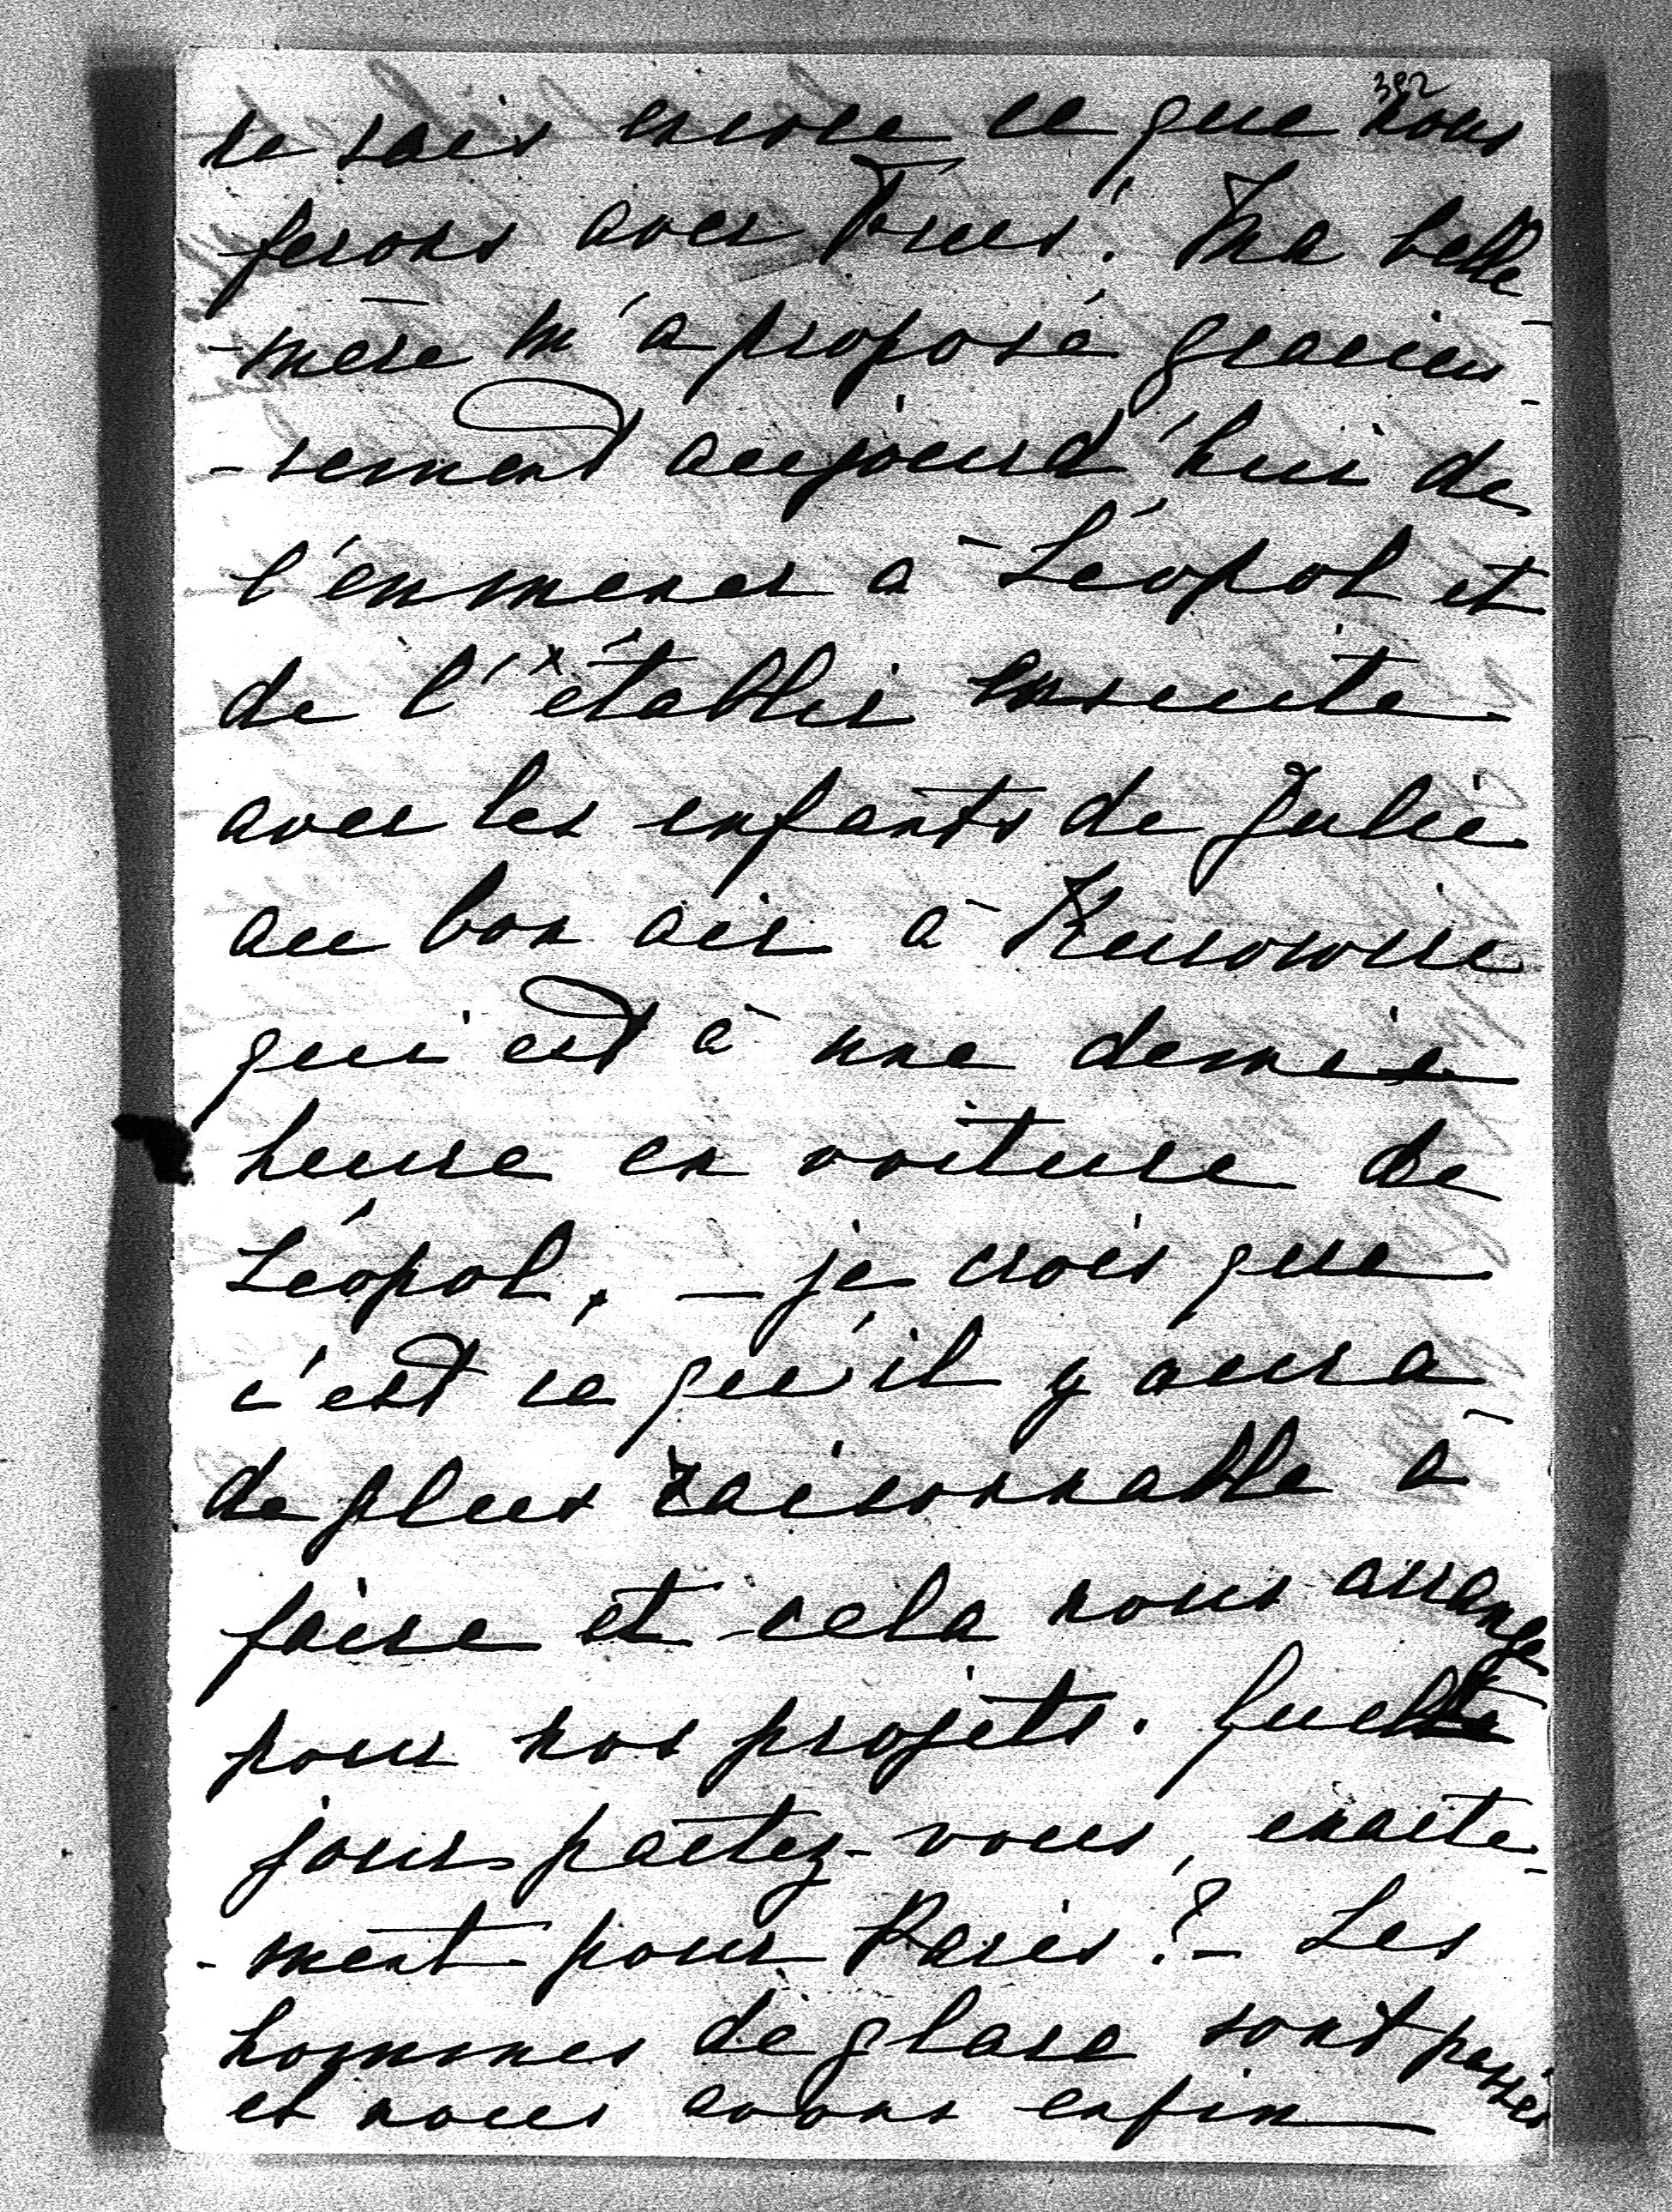 392
ne sais encore ce que nous
ferons avec Fues. Ma belle-
-mère m'a proposé gracieu-
-sement aujourd'hui de
l'emmener à Léopol et
de l'établir ensuite
avec les enfants de Julie
au bon air à Kurowice
qui est à une demie
heure en voiture de
Léopol, – je crois que
c'est ce qu'il y aura
de plus raisonnable à
faire et cela nous arrange
pour nos projets. Quel
jour partez-vous, exacte-
-ment pour Paris? – Les
hommes de glace sont passés
et nous avons enfin